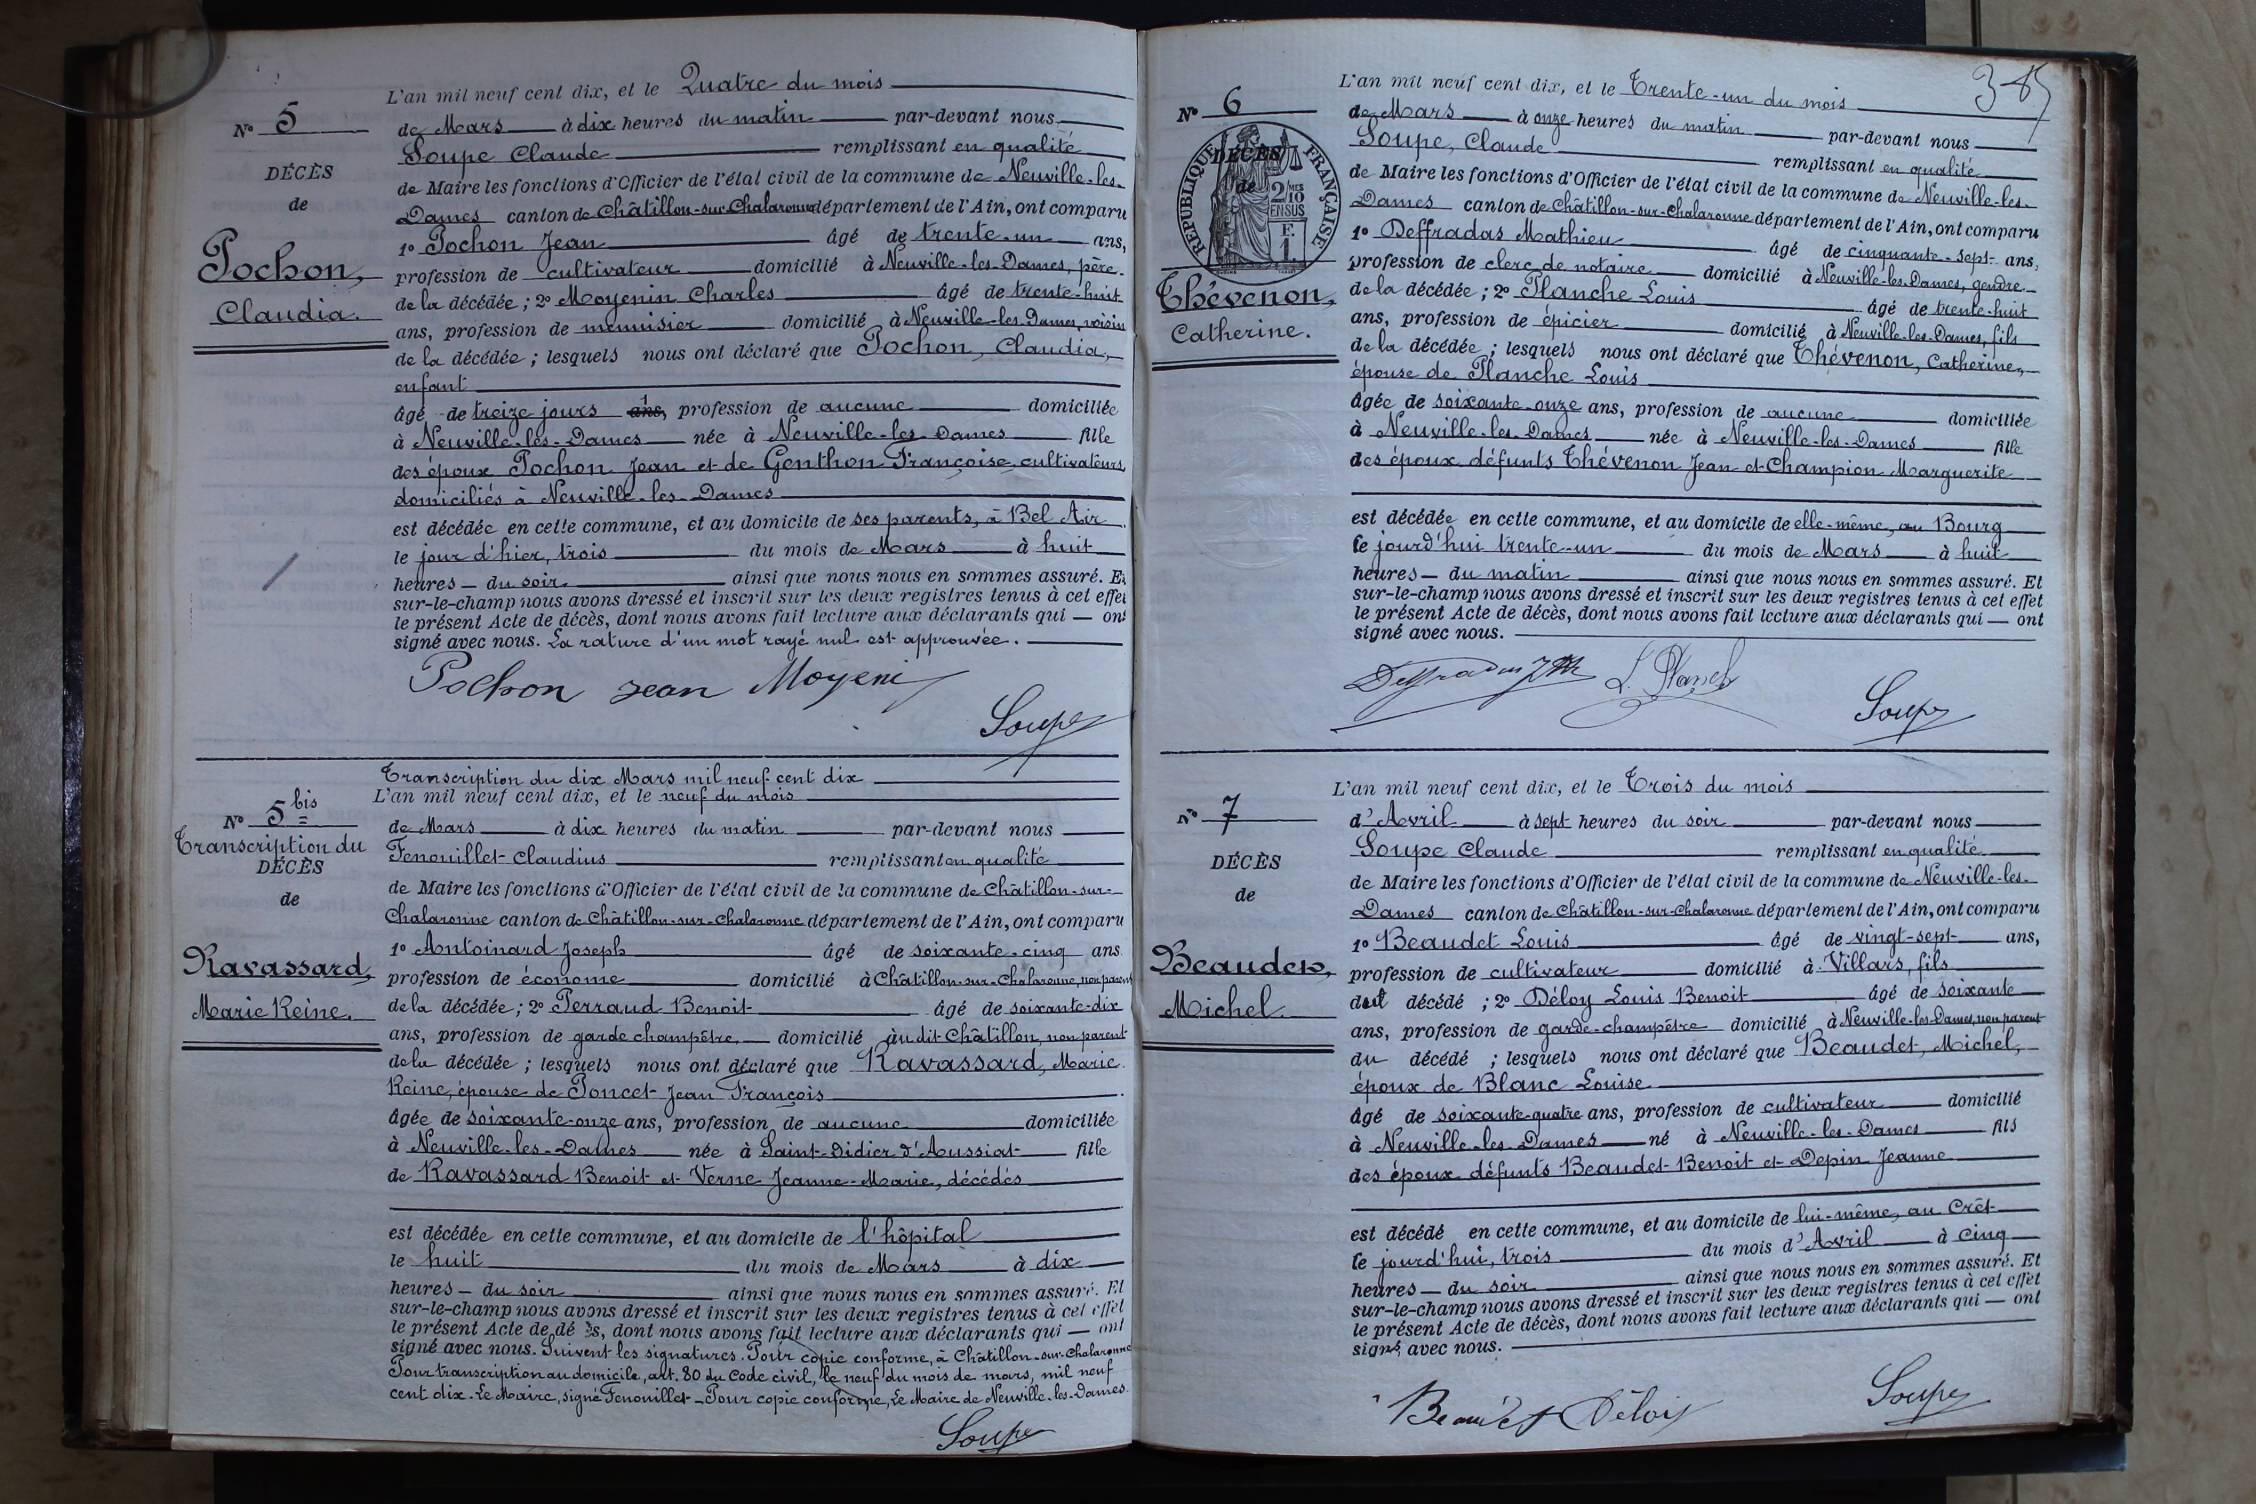 L'an mil neuf cent dix, et le Quatre du mois
N° 5
de Mars à dix heures du matin par-devant nous
Soupe Claude remplissant en qualité
DÉCÈS
de Maire les fonctions d'Officier de l'état civil de la commune de Neuville-les-
de
Dames canton de Châtillon-sur-Chalaronne département de l'Ain, ont comparu
Pochon,
1° Pochon Jean âgé de trente-un ans,
profession de cultivateur domicilié à Neuville-les-Dames, père
Claudia.
de la décédée ; 2° Moyenin Charles âgé de trente-huit
ans, profession de menuisier domicilié à Neuville-les-Dames, voisin
de la décédée ; lesquels nous ont déclaré que Pochon, Claudia,
enfant
âgé de treize jours ans, profession de aucune domiciliée
à Neuville-les-Dames née à Neuville-les-Dames fille
des époux Pochon Jean et de Genthon Françoise, cultivateurs,
domiciliés à Neuville-les-Dames
est décédée en cette commune, et au domicile de ses parents, à Bel Air
le jour d'hier, trois du mois de Mars à huit
heures — du soir ainsi que nous nous en sommes assuré. Et
sur-le-champ nous avons dressé et inscrit sur les deux registres tenus à cet effet
le présent Acte de décès, dont nous avons fait lecture aux déclarants qui — ont
signé avec nous. La rature d'un mot rayé nul est approuvée.
Pochon Jean Moyeni
Soupe
Transcription du dix Mars mil neuf cent dix
L'an mil neuf cent dix, et le neuf du mois
N° 5 bis
de Mars à dix heures du matin par-devant nous
Transcription du
DÉCÈS
Fenouillet Claudius remplissant en qualité
de Maire les fonctions d'Officier de l'état civil de la commune de Châtillon-sur-
de
Chalaronne canton de Châtillon-sur-Chalaronne département de l'Ain, ont comparu
1° Antoinard Joseph âgé de soixante-cinq ans
Ravassard,
profession de économe domicilié à Châtillon-sur-Chalaronne, non parent
Marie Reine.
de la décédée ; 2° Perraud Benoit âgé de soixante-dix
ans, profession de garde champêtre, domicilié àu dit Châtillon, non parent
de la décédée ; lesquels nous ont déclaré que Ravassard, Marie
Reine, épouse de Poncet Jean François
âgée de soixante-onze ans, profession de aucune domiciliée
à Neuville-les-Dames née à Saint-Didier d'Aussiat fille
de Ravassard Benoit et Verne Jeanne-Marie, décédés
est décédée en cette commune, et au domicile de l'hôpital
le huit du mois de Mars à dix
heures — du soir ainsi que nous nous en sommes assuré. Et
sur-le-champ nous avons dressé et inscrit sur les deux registres tenus à cet effet
le présent Acte de décès, dont nous avons fait lecture aux déclarants qui — ont
signé avec nous. Suivent les signatures. Pour copie conforme, à Châtillon-sur-Chalaronne
Pour transcription au domicile, art. 80 du Code civil, le neuf du mois de mars, mil neuf
cent dix. Le Maire, signé Fenouillet — Pour copie conforme, Le Maire de Neuville-les-Dames.
Soupe
L'an mil neuf cent dix, et le Trente-un du mois
N° 6
de Mars à onze heures du matin par-devant nous
Soupe, Claude remplissant en qualité
RÉPUBLIQUE FRANÇAISE
DÉCÈS
de
2/10 MES
EN SUS
F.
1.
de Maire les fonctions d'Officier de l'état civil de la commune de Neuville-les-
Dames canton de Châtillon-sur-Chalaronne département de l'Ain, ont comparu
1° Deffradas Mathieu âgé de cinquante-sept ans,
profession de clerc de notaire domicilié à Neuville-les-Dames, gendre
Thévenon,
Catherine.
de la décédée ; 2° Planche Louis âgé de trente-huit
ans, profession de épicier domicilié à Neuville-les-Dames, fils
de la décédée ; lesquels nous ont déclaré que Thévenon, Catherine,
épouse de Planche Louis
âgée de soixante-onze ans, profession de aucune domiciliée
à Neuville-les-Dames née à Neuville-les-Dames fille
des époux défunts Thévenon Jean et Champion Marguerite
est décédée en cette commune, et au domicile de elle-même, au Bourg
le jourd'hui trente-un du mois de Mars à huit
heures — du matin ainsi que nous nous en sommes assuré. Et
sur-le-champ nous avons dressé et inscrit sur les deux registres tenus à cet effet
le présent Acte de décès, dont nous avons fait lecture aux déclarants qui — ont
signé avec nous.
Deffradas L. Planch
Soupe
L'an mil neuf cent dix, et le Trois du mois
N° 7
d'Avril à sept heures du soir par-devant nous
Soupe Claude remplissant en qualité
DÉCÈS
de Maire les fonctions d'Officier de l'état civil de la commune de Neuville-les-
de
Dames canton de Châtillon-sur-Chalaronne département de l'Ain, ont comparu
1° Beaudet Louis âgé de vingt-sept ans,
Beaudet,
profession de cultivateur domicilié à Villars, fils
Michel.
du décédé ; 2° Déloy Louis Benoit âgé de soixante
ans, profession de garde-champêtre domicilié à Neuville-les-Dames, non parent
du décédé ; lesquels nous ont déclaré que Beaudet, Michel,
époux de Blanc Louise
âgé de soixante-quatre ans, profession de cultivateur domicilié
à Neuville-les-Dames né à Neuville-les-Dames fils
des époux défunts Beaudet Benoit et Depin Jeanne
est décédé en cette commune, et au domicile de lui-même, au Crêt
le jourd'hui, trois du mois d'Avril à cinq
heures — du soir ainsi que nous nous en sommes assuré. Et
sur-le-champ nous avons dressé et inscrit sur les deux registres tenus à cet effet
le présent Acte de décès, dont nous avons fait lecture aux déclarants qui — ont
signé avec nous.
Beaudet Déloy
Soupe